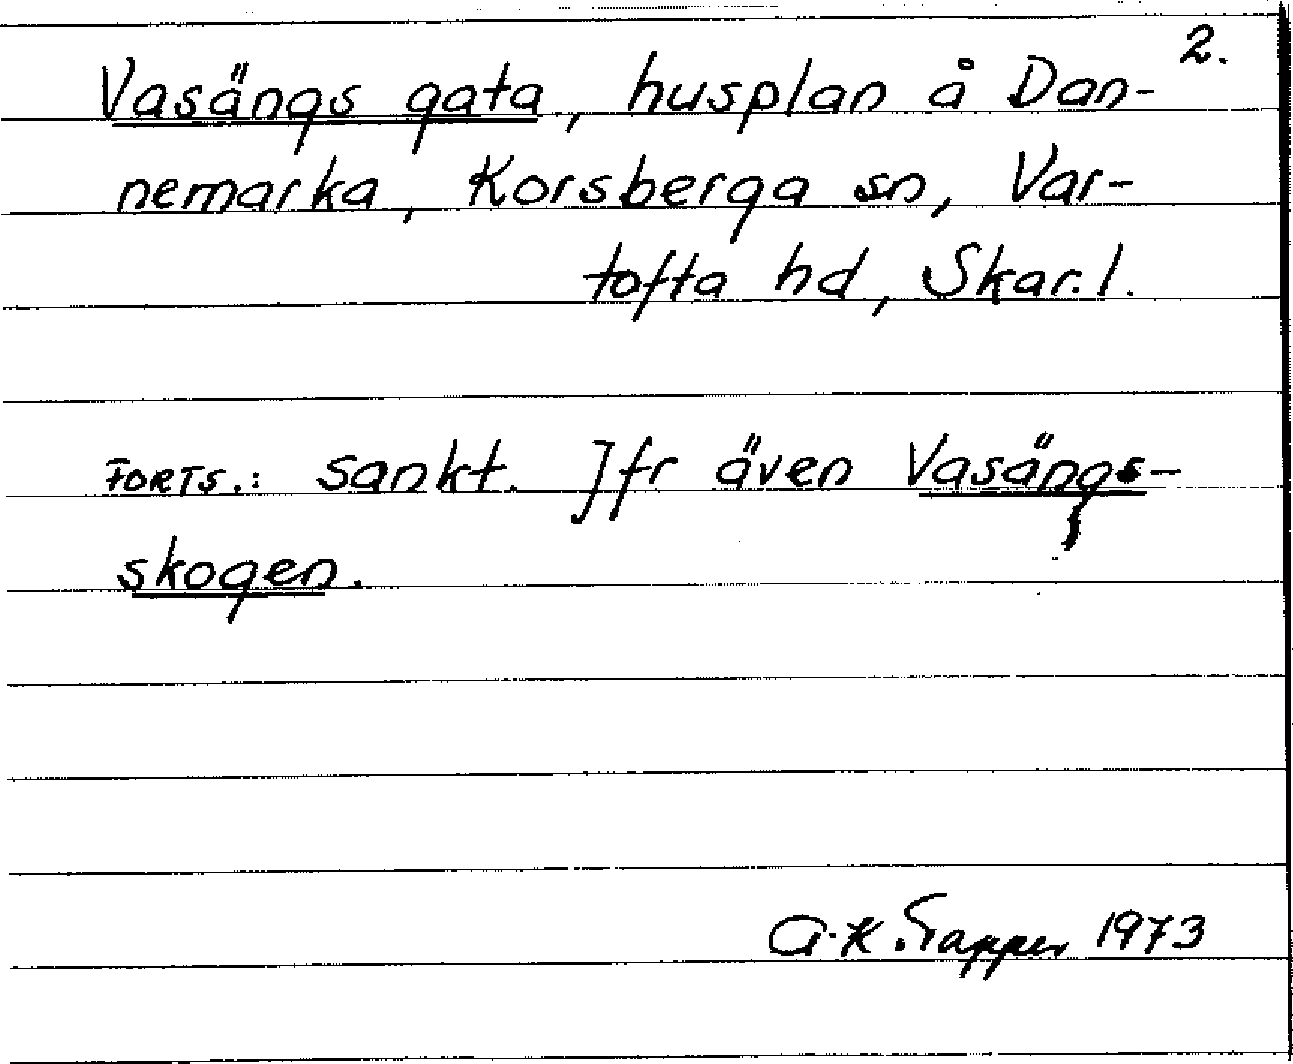 2.
Vasängs gata, husplan å Dan-
nemarka, Korsberga sn, Var-
tofta hd, Skar. l.
FORTS.: sankt. Jfr även Vasängs-
skogen.
A-K. Tapper 1973